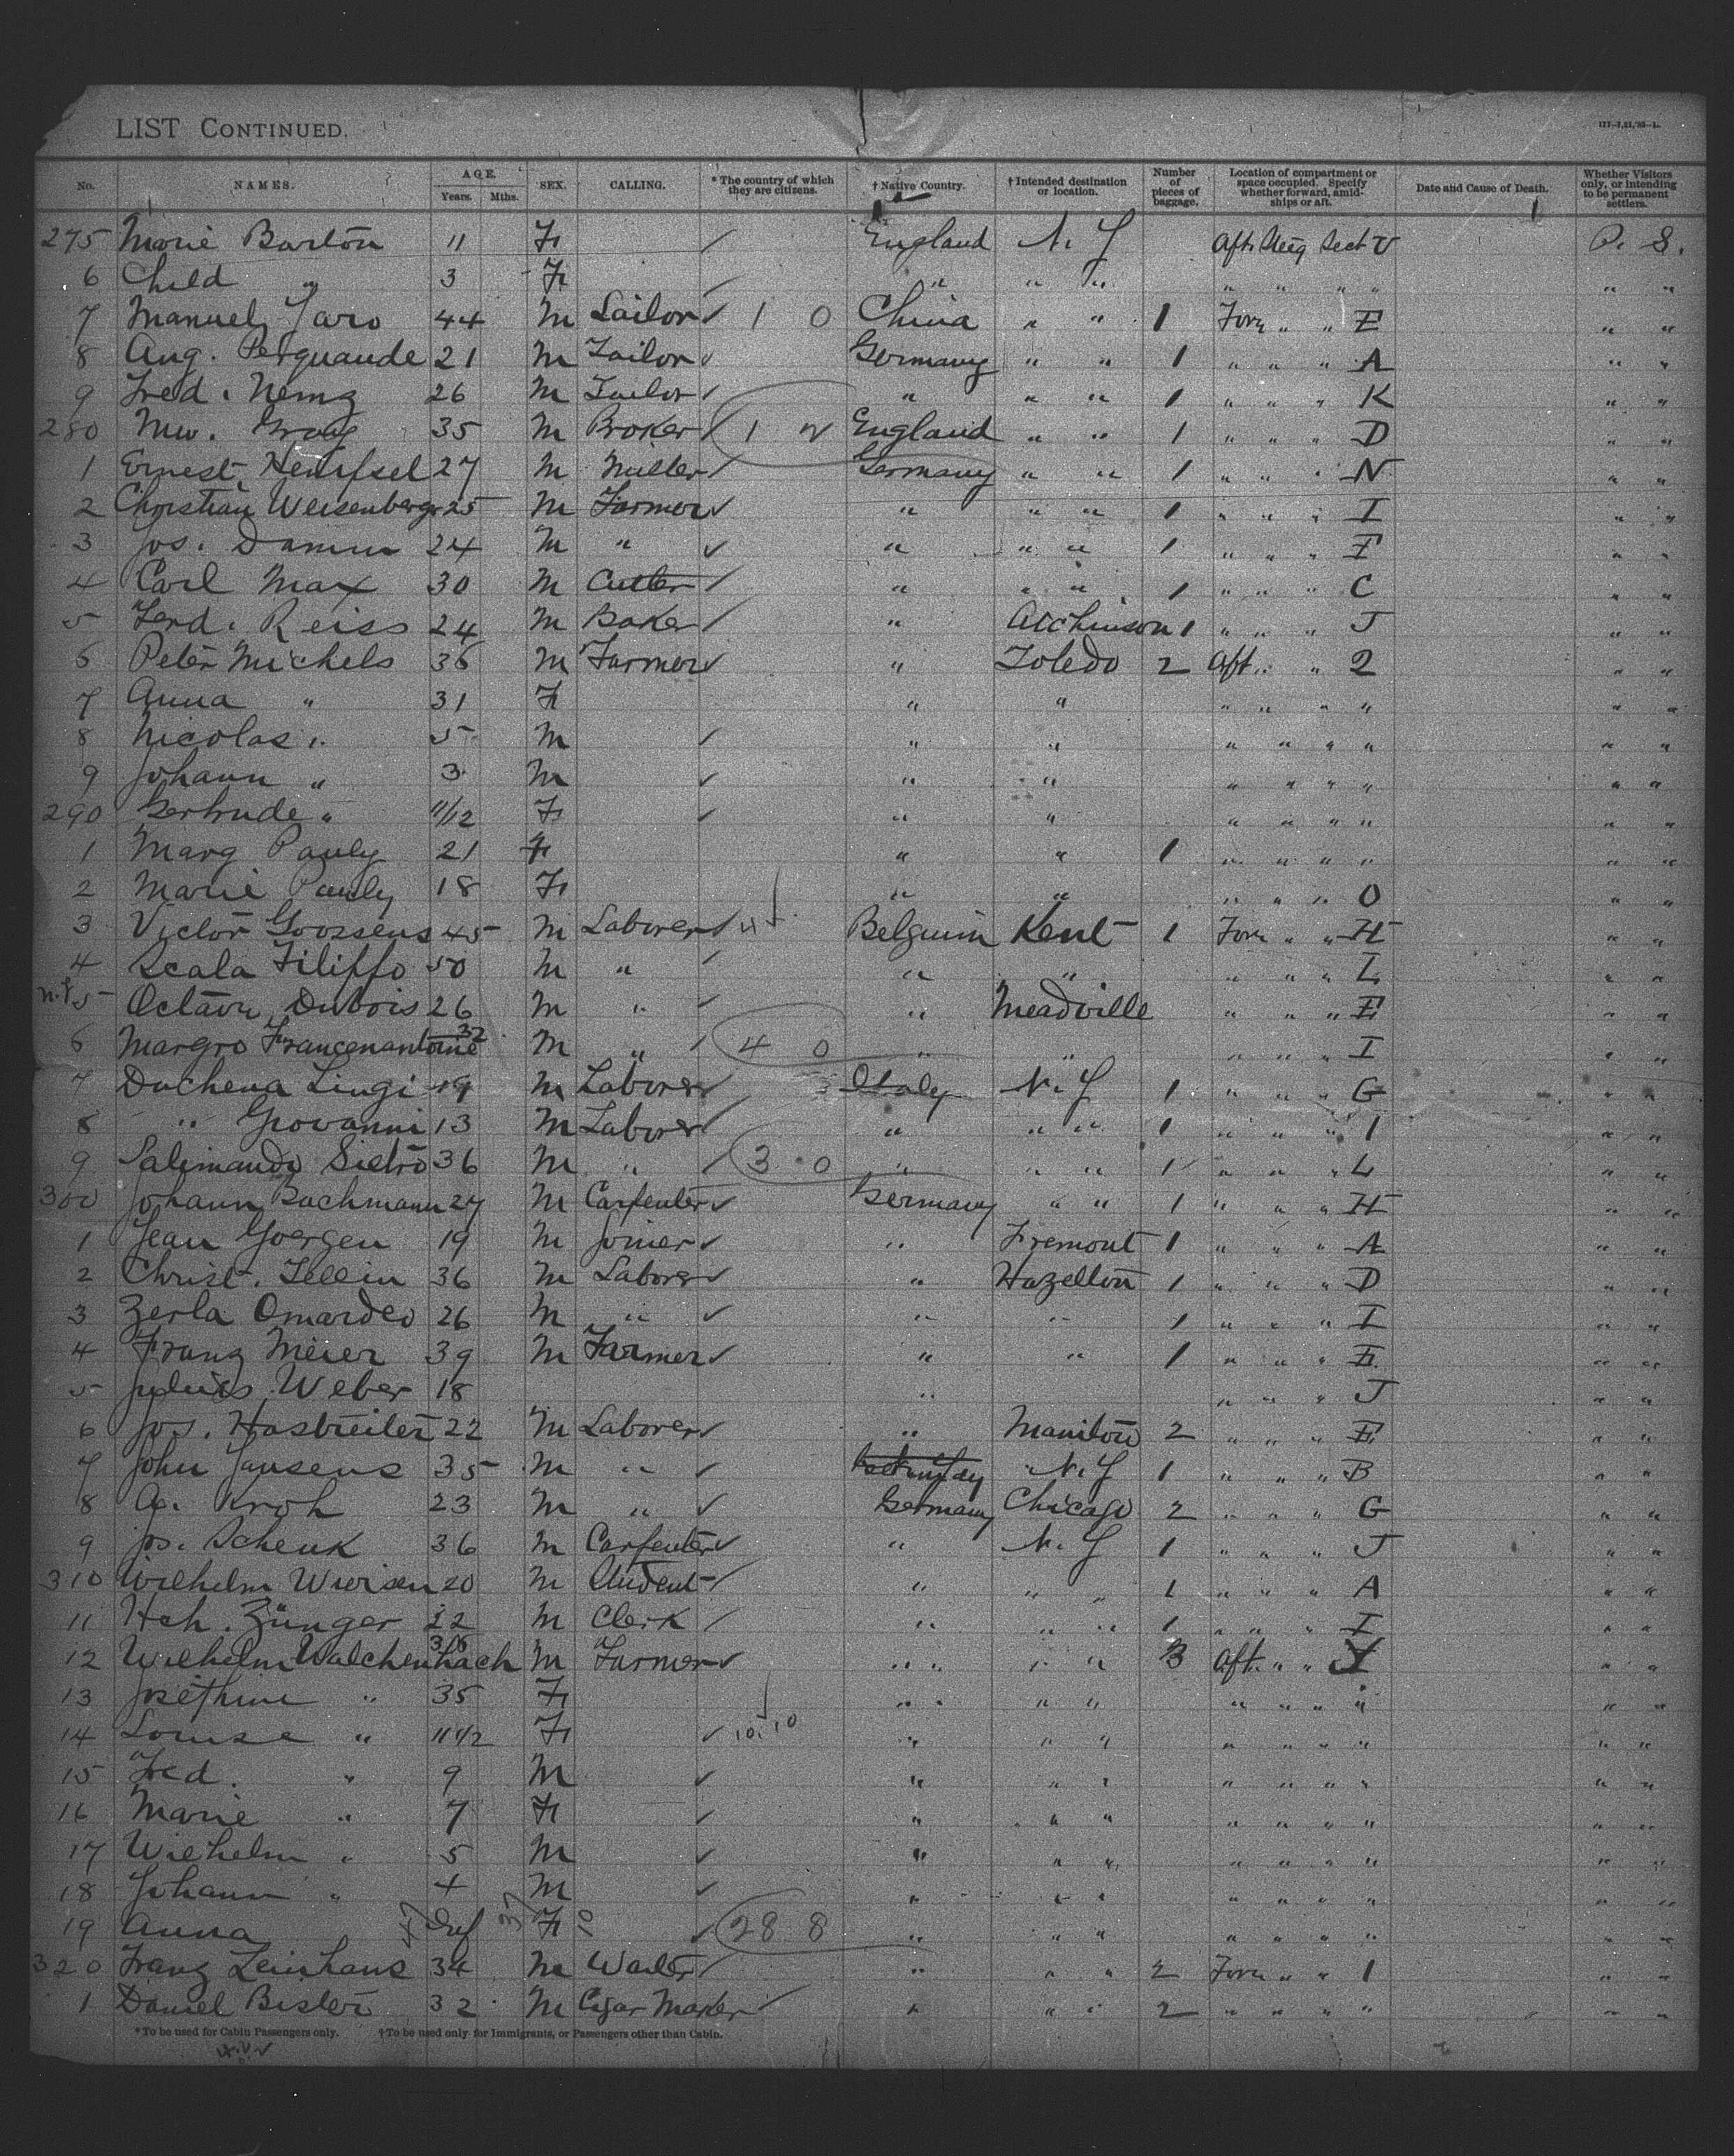 LIST CONTINUED.
117-7,21,'93-L.
No. NAMES. AGE. Years. Mths. SEX. CALLING. * The country of which they are citizens. † Native Country. † Intended destination or location. Number of pieces of baggage. Location of compartment or space occupied. Specify whether forward, amidships or aft. Date and Cause of Death. Whether Visitors only, or intending to be permanent settlers.
275 Marie Barton 11 F England N. Y Aft. Steeg Sect V P. S.
6 Child " 3 F " " " " " " " " "
7 Manuel Jaro 44 M Sailor 1 0 China " " 1 Forw " " E " "
8 Aug. Perguande 21 M Tailor Germany " " 1 " " " A " "
9 Fred. Nemz 26 M Tailor " " " 1 " " " K " "
280 Mw. Gray 35 M Broker 1 2 England " " 1 " " " D " "
1 Ernest Hempfsel 27 M Miller Germany " " 1 " " " N " "
2 Christian Weisenberger 25 M Farmer " " " 1 " " " I " "
3 Jos. Damm 24 M " " " " 1 " " " F " "
4 Carl Max 30 M Cutler " " " 1 " " " C " "
5 Ferd. Reiss 24 M Baker " Atchinson 1 " " " J " "
6 Peter Michels 36 M Farmer " Toledo 2 Aft. " " 2 " "
7 Anna " 31 F " " " " " " " "
8 Nicolas " 5 M " " " " " " " "
9 Johann " 3 M " " " " " " " "
290 Gertrude " 11/12 F " " " " " " " "
1 Marg Pauly 21 F " " 1 " " " " " "
2 Marie Pauly 18 F " " " " " O " "
3 Victor Goossens 45 M Laborer Belguim Kent 1 Forw " " H " "
4 Scala Filippo 50 M " " " " " " L " "
5 Octave Dubois 26 M " " Meadville " " " E " "
6 Margro Francenantoine 32 M " 4 0 " " " " " I " "
7 Duchena Lingi 19 M Laborer Italy N. Y 1 " " " G " "
8 " Giovanni 13 M Laborer " " " 1 " " " 1 " "
9 Palimando Sietro 36 M " 3 0 " " " 1 " " " L " "
300 Johann Bachmann 27 M Carpenter Germany " " 1 " " " H " "
1 Jean Goergen 19 M Joiner " Fremont 1 " " " A " "
2 Christ. Tellin 36 M Laborer " Hazelton 1 " " " D " "
3 Zerla Omardeo 26 M " " " 1 " " " I " "
4 Franz Meier 39 M Farmer " " 1 " " " E " "
5 Julius Weber 18 " " " " J " "
6 Jos. Hasbreiter 22 M Laborer " Manitou 2 " " " E " "
7 John Jansens 35 M " N. Y 1 " " " B " "
8 A. Kroh 23 M " Germany Chicago 2 " " " G " "
9 Jos. Schenk 36 M Carpenter " N. Y 1 " " " J " "
310 Wilhelm Wiersen 20 M Student " " " 1 " " " A " "
11 Hch. Zünger 22 M Clerk " " " 1 " " " I " "
12 Wilhelm Walchenbach 36 M Farmer " " " " 3 Aft. " " Y " "
13 Josephine " 35 F " " " " " " " " " "
14 Louise " 11 1/2 F 10. 10 " " " " " " " " "
15 Fred. " 9 M " " " " " " " " "
16 Marie " 7 F " " " " " " " " "
17 Wilhelm " 5 M " " " " " " " " "
18 Johann " 4 M " " " " " " " " "
19 Anna Inf F 28 8 " " " " " " " " "
320 Franz Leinhans 34 M Waiter " " " 2 Forw " " 1 " "
1 Daniel Bister 32 M Cigar Maker " " " 2 " " " " " "
*To be used for Cabin Passengers only. †To be used only for Immigrants, or Passengers other than Cabin.